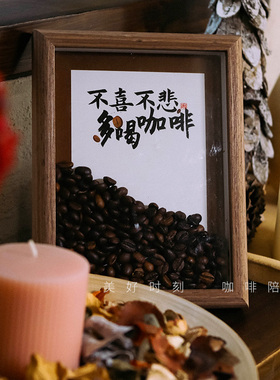 不喜不悲
多喝咖啡
美好时刻 咖啡陪